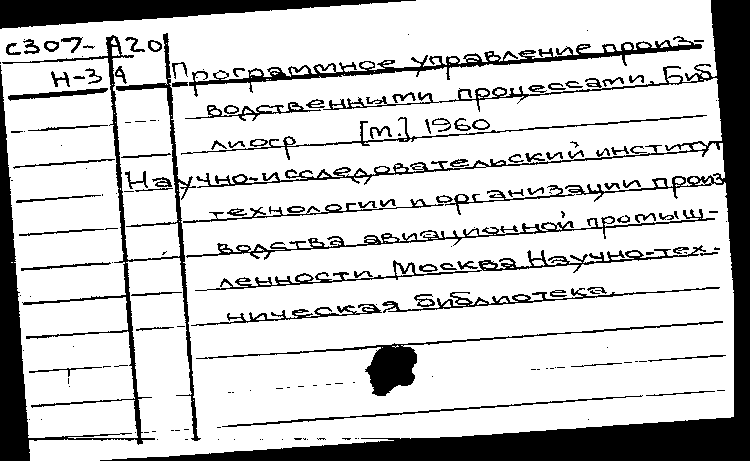 С307- А20
Н-3 4 Программное управление произ-
водственными процессами. Биб
лиогр [М.], 1960.
Научно-исследовательский институт
технологии и организации произ
водства авиационной промыш-
ленности. Москва. Научно-тех-
ническая библиотека.